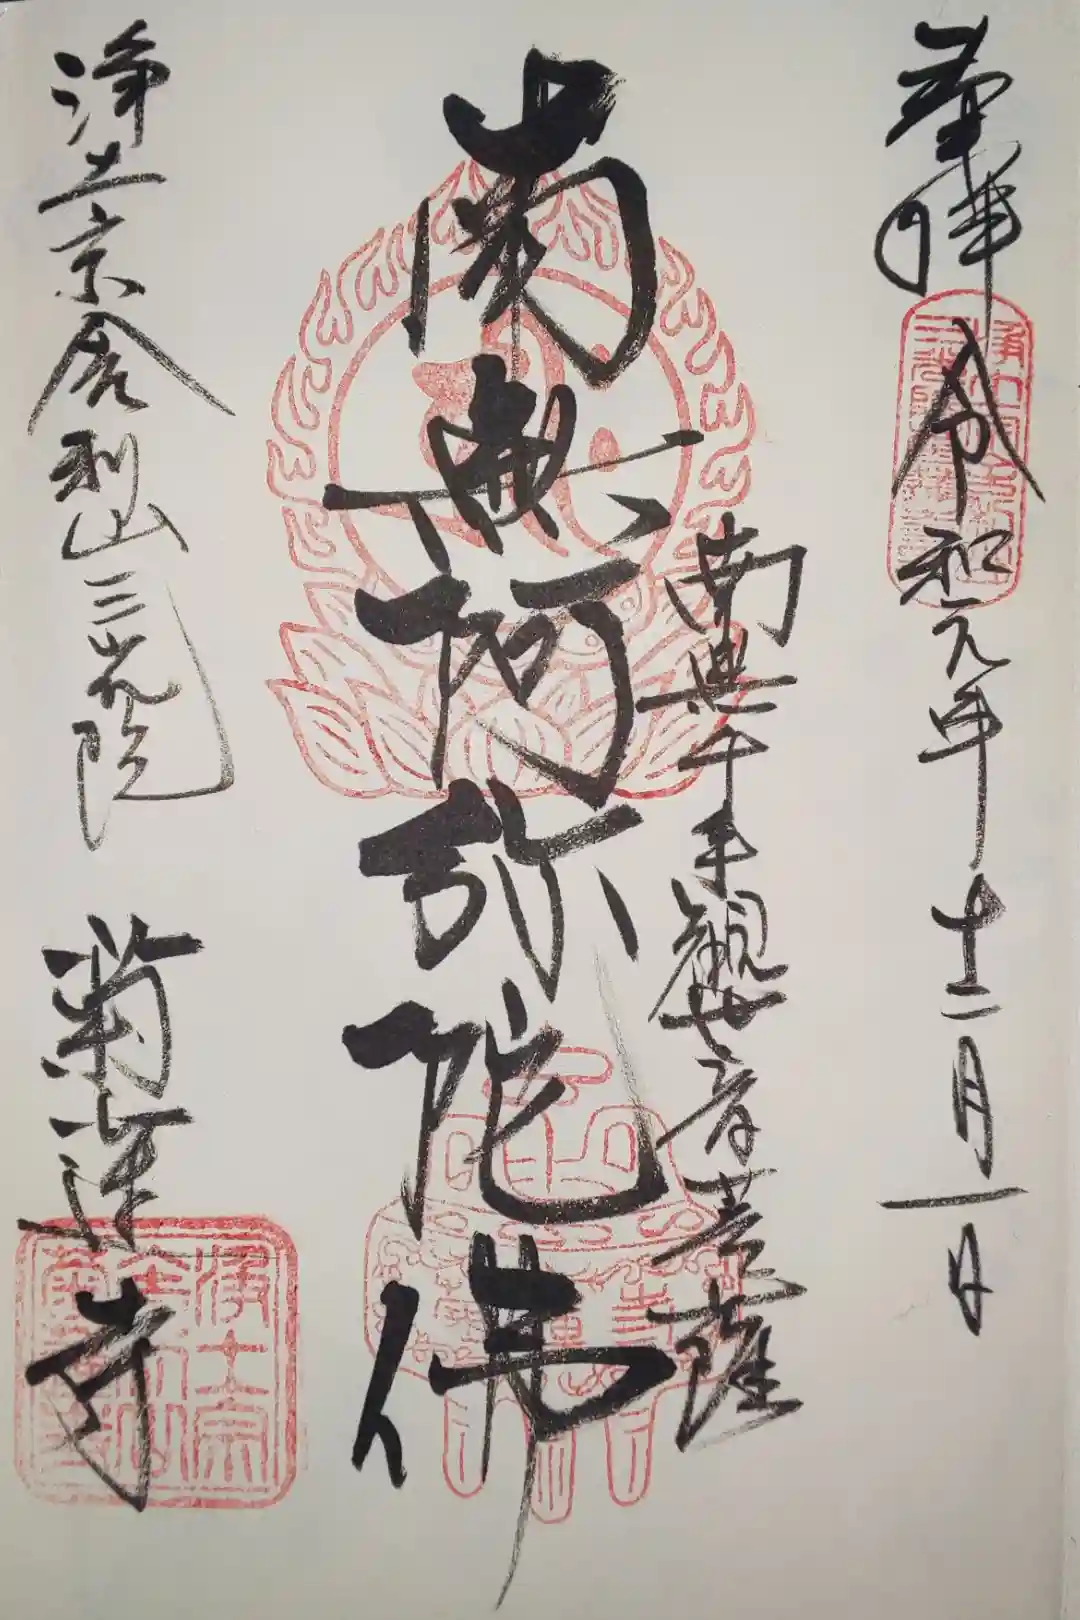 奉拝
令和元年十二月一日
南無千手観世音菩薩
南無阿弥陀佛
浄土宗舎利山三光院
菊蓮寺
浄土宗
舎利山
菊蓮寺